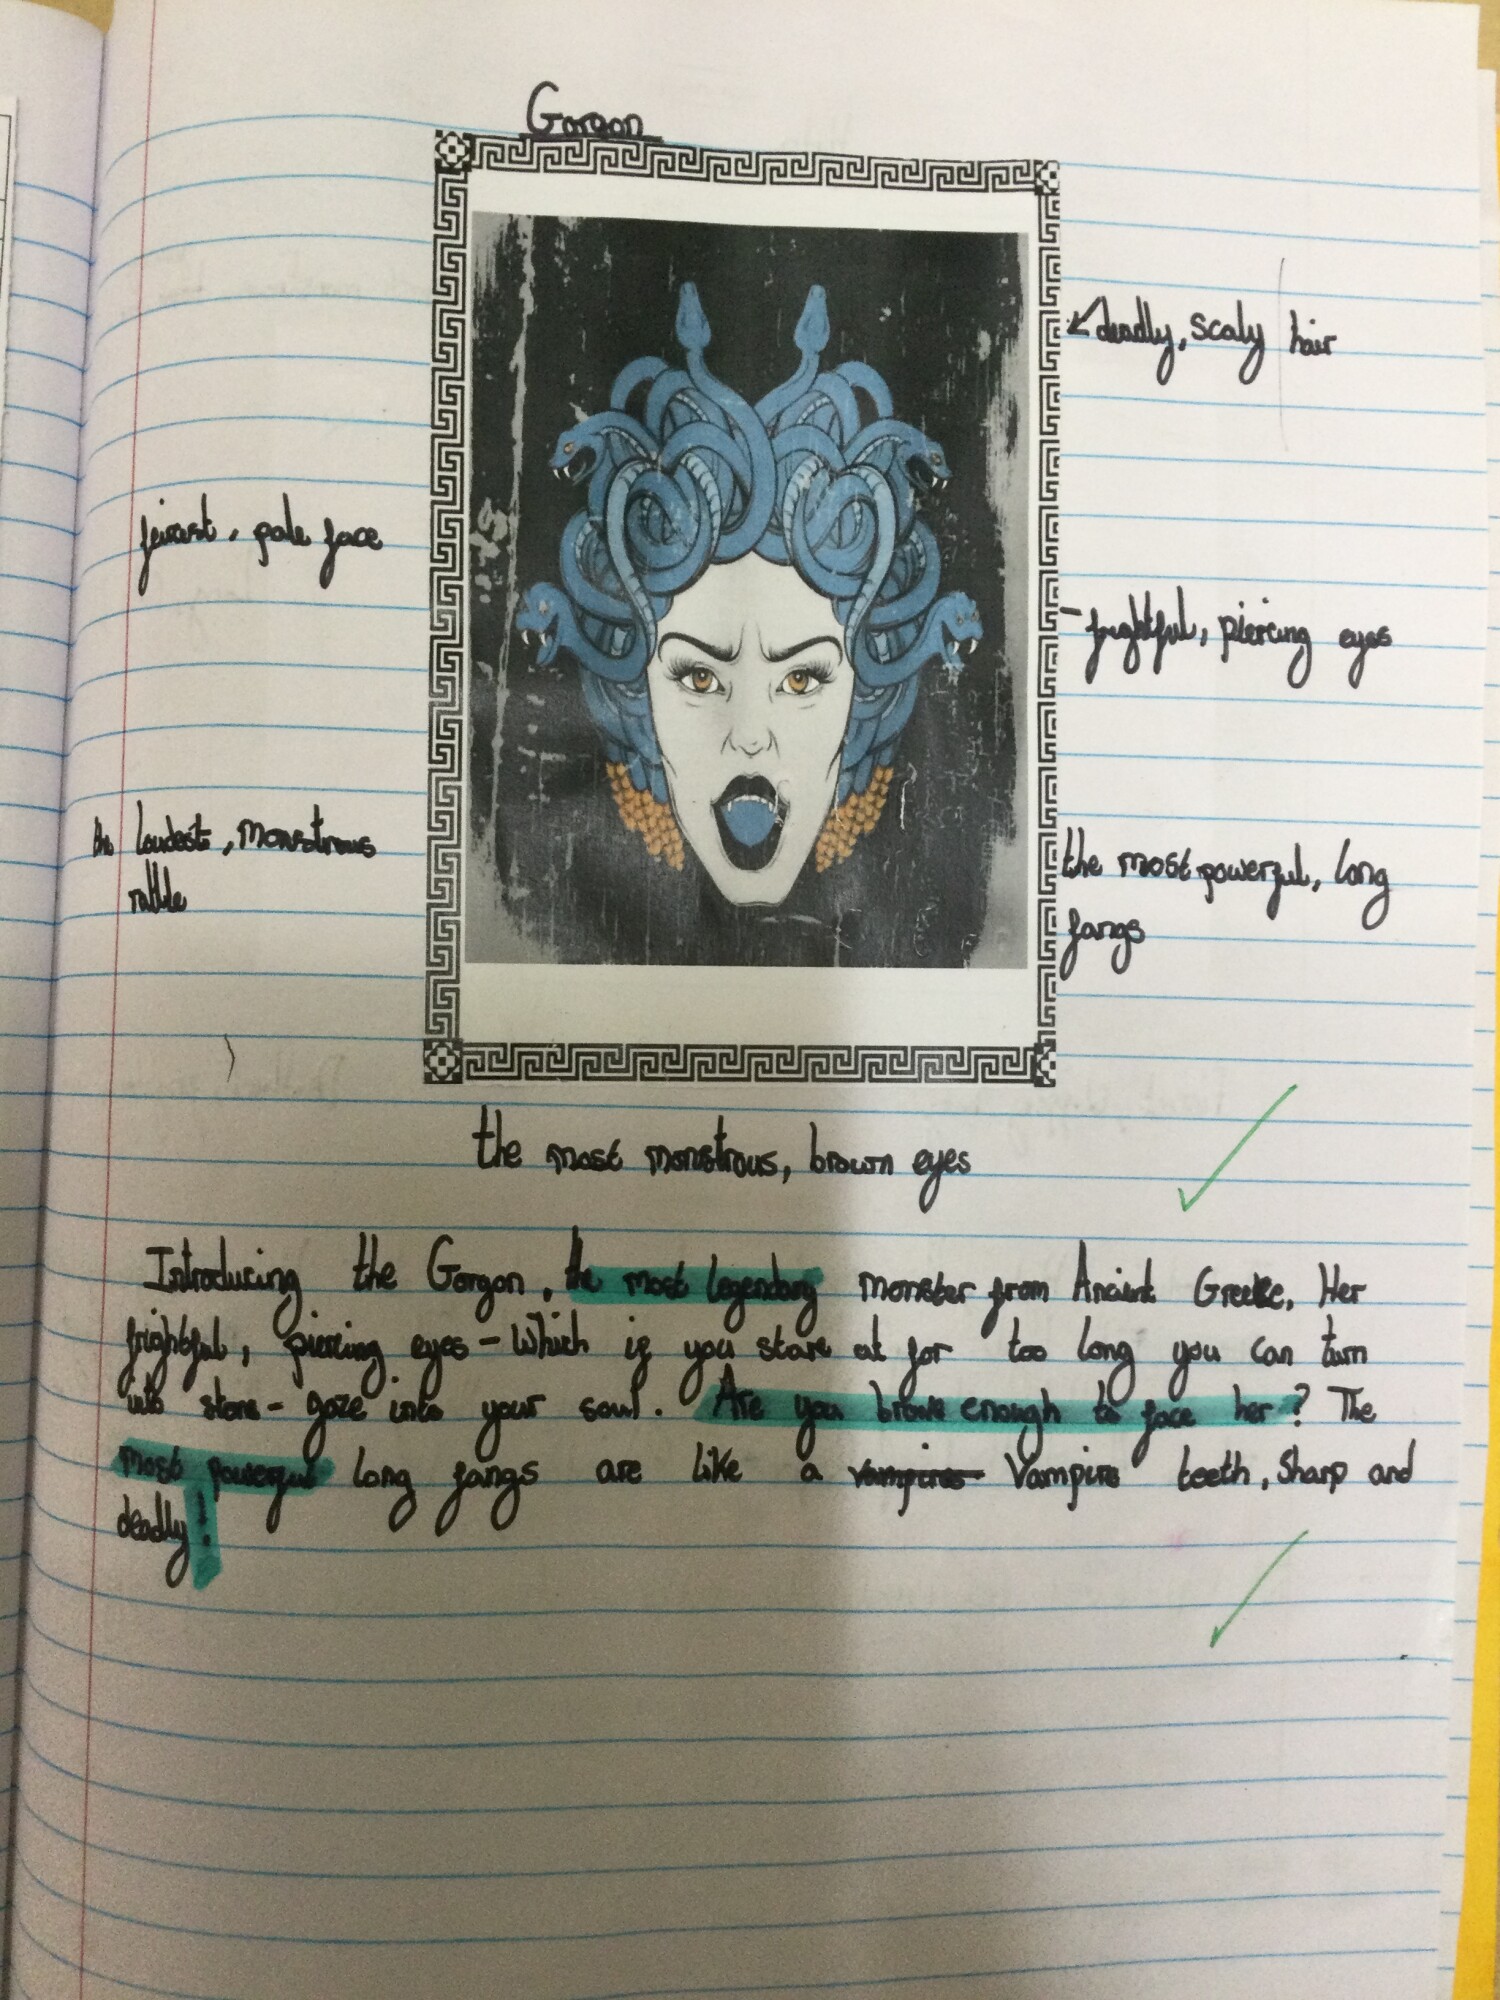 Gorgon
deadly, scaly hair
feirest, pale face
frightful, piercing eyes
the loudest, monstrous
rattle
the most powerful, long
fangs
the most monstrous, brown eyes
Introducing the Gorgon, the most legendary monster from Ancient Greece. Her
frightful, piercing eyes - Which if you stare at for too long you can turn
into stone - gaze into your soul. Are you brave enough to face her? The
most powerful long fangs are like a vampires Vampire teeth, Sharp and
deadly!